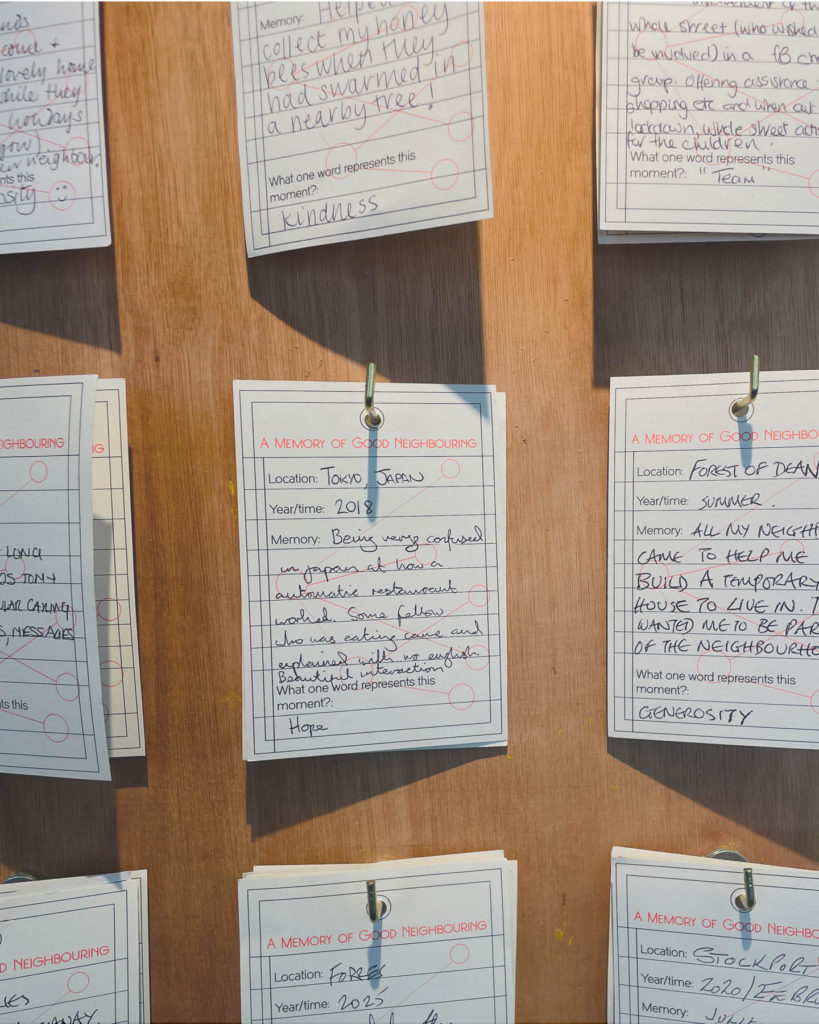 come +
lovely home
while they
holidays
neighbour.
nts this
osity
Memory: Helped
collect my honey
bees when they
had swarmed in
a nearby tree!
What one word represents this
moment?:
Kindness
whole street (who wished
be involved) in a FB
group. Offering assistance
shopping etc and when out
lockdown, whole street
for the children.
What one word represents this
moment?: "Team"
EIGHBOURING
NG
LONG
TONY
CALLING
MESSAGES
ts this
A Memory of Good Neighbouring
Location: Tokyo, Japan
Year/time: 2018
Memory: Being very confused
in japan at how a
automatic restaurant
worked. Some fellow
who was eating came and
explained with no english.
Beautiful interaction
What one word represents this
moment?:
Hope
A Memory of Good Neighbou
Location: FOREST OF DEAN
Year/time: SUMMER.
Memory: ALL MY NEIGH
CAME TO HELP ME
BUILD A TEMPORARY
HOUSE TO LIVE IN. T
WANTED ME TO BE PAR
OF THE NEIGHBOURHO
What one word represents this
moment?:
GENEROSITY
D Neighbouring
A Memory of Good Neighbouring
Location: FORRES
Year/time: 2025
A Memory of Good Neighbou
Location: STOCKPORT
Year/time: 2020/
Memory: